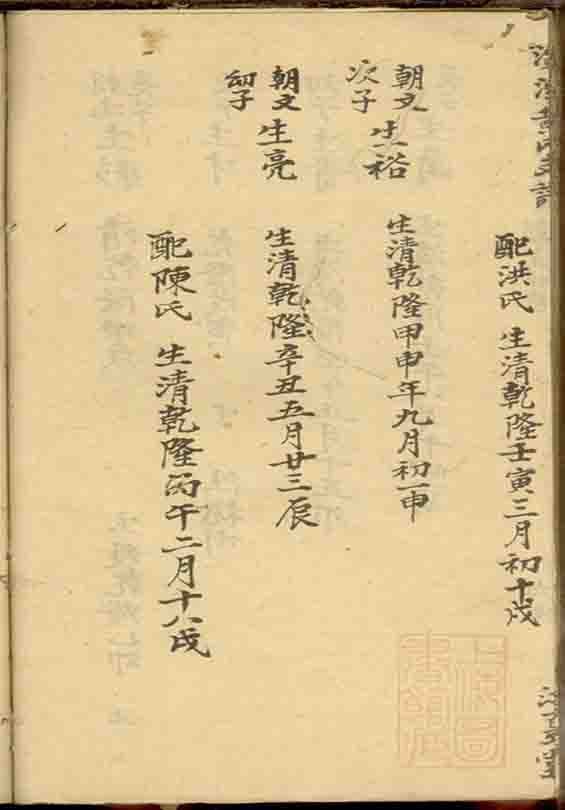 配洪氏 生清乾隆壬寅三月初十戌
朝文
次子
生裕
生清乾隆甲申年九月初一申
朝文
幼子
生亮
生清乾隆辛丑五月廿三辰
配陳氏 生清乾隆丙午二月十八戌